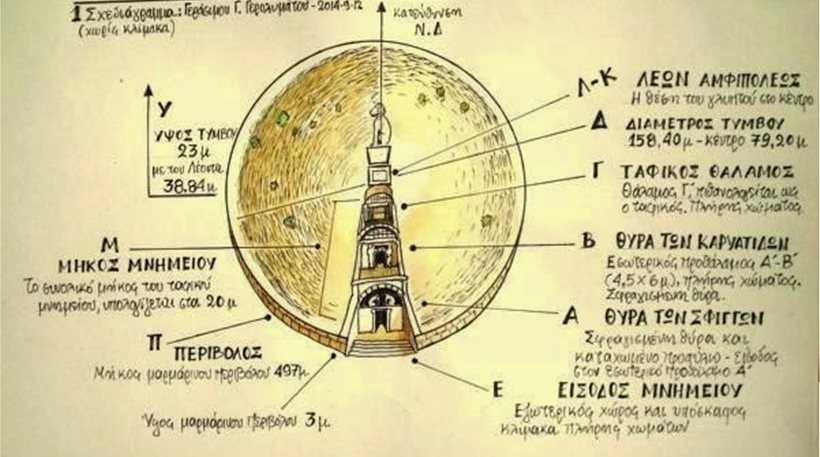 1 Σχεδιάγραμμα: Γεράσιμου Γ. Γερολυμάτου - 2014-9-12
(χωρίς κλίμακα)
κατεύθυνση
Ν.Δ
Υ
ΥΨΟΣ ΤΥΜΒΟΥ
23 μ
με τον Λέοντα
38.84 μ
Λ-Κ ΛΕΩΝ ΑΜΦΙΠΟΛΕΩΣ
Η θέση του γλυπτού στο κέντρο
Δ ΔΙΑΜΕΤΡΟΣ ΤΥΜΒΟΥ
158,40 μ - κέντρο 79,20 μ
Γ ΤΑΦΙΚΟΣ ΘΑΛΑΜΟΣ
Θάλαμος Γ΄. πιθανολογείται ως
ο ταφικός. Πλήρης χώματος
Β ΘΥΡΑ ΤΩΝ ΚΑΡΥΑΤΙΔΩΝ
Εσωτερικός προθάλαμος Α΄-Β΄
(4,5 × 6 μ), πλήρης χώματος.
Σφραγισμένη θύρα.
Α ΘΥΡΑ ΤΩΝ ΣΦΙΓΓΩΝ
Σφραγισμένη θύρα και
καταχωμένο πρόπυλο - είσοδος
στον εσωτερικό προθάλαμο Α΄
Ε ΕΙΣΟΔΟΣ ΜΝΗΜΕΙΟΥ
Εξωτερικός χώρος και υπόσκαφος
κλίμακα πλήρης χωμάτων
Μ
ΜΗΚΟΣ ΜΝΗΜΕΙΟΥ
Το συνολικό μήκος του ταφικού
μνημείου, υπολογίζεται στα 20 μ
Π ΠΕΡΙΒΟΛΟΣ
Μήκος μαρμάρινου περιβόλου 497 μ
Ύψος μαρμάρινου περιβόλου 3 μ.